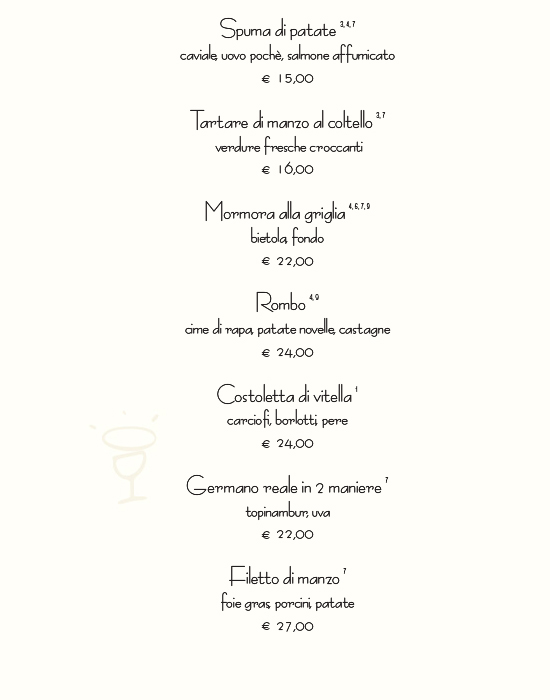 Spuma di patate 3,4,7
caviale, uovo pochè, salmone affumicato
€ 15,00
Tartare di manzo al coltello 3,7
verdure fresche croccanti
€ 16,00
Mormora alla griglia 4,6,7,9
bietola, fondo
€ 22,00
Rombo 4,9
cime di rapa, patate novelle, castagne
€ 24,00
Costoletta di vitella 1
carciofi, borlotti, pere
€ 24,00
Germano reale in 2 maniere 7
topinambur, uva
€ 22,00
Filetto di manzo 7
foie gras, porcini, patate
€ 27,00